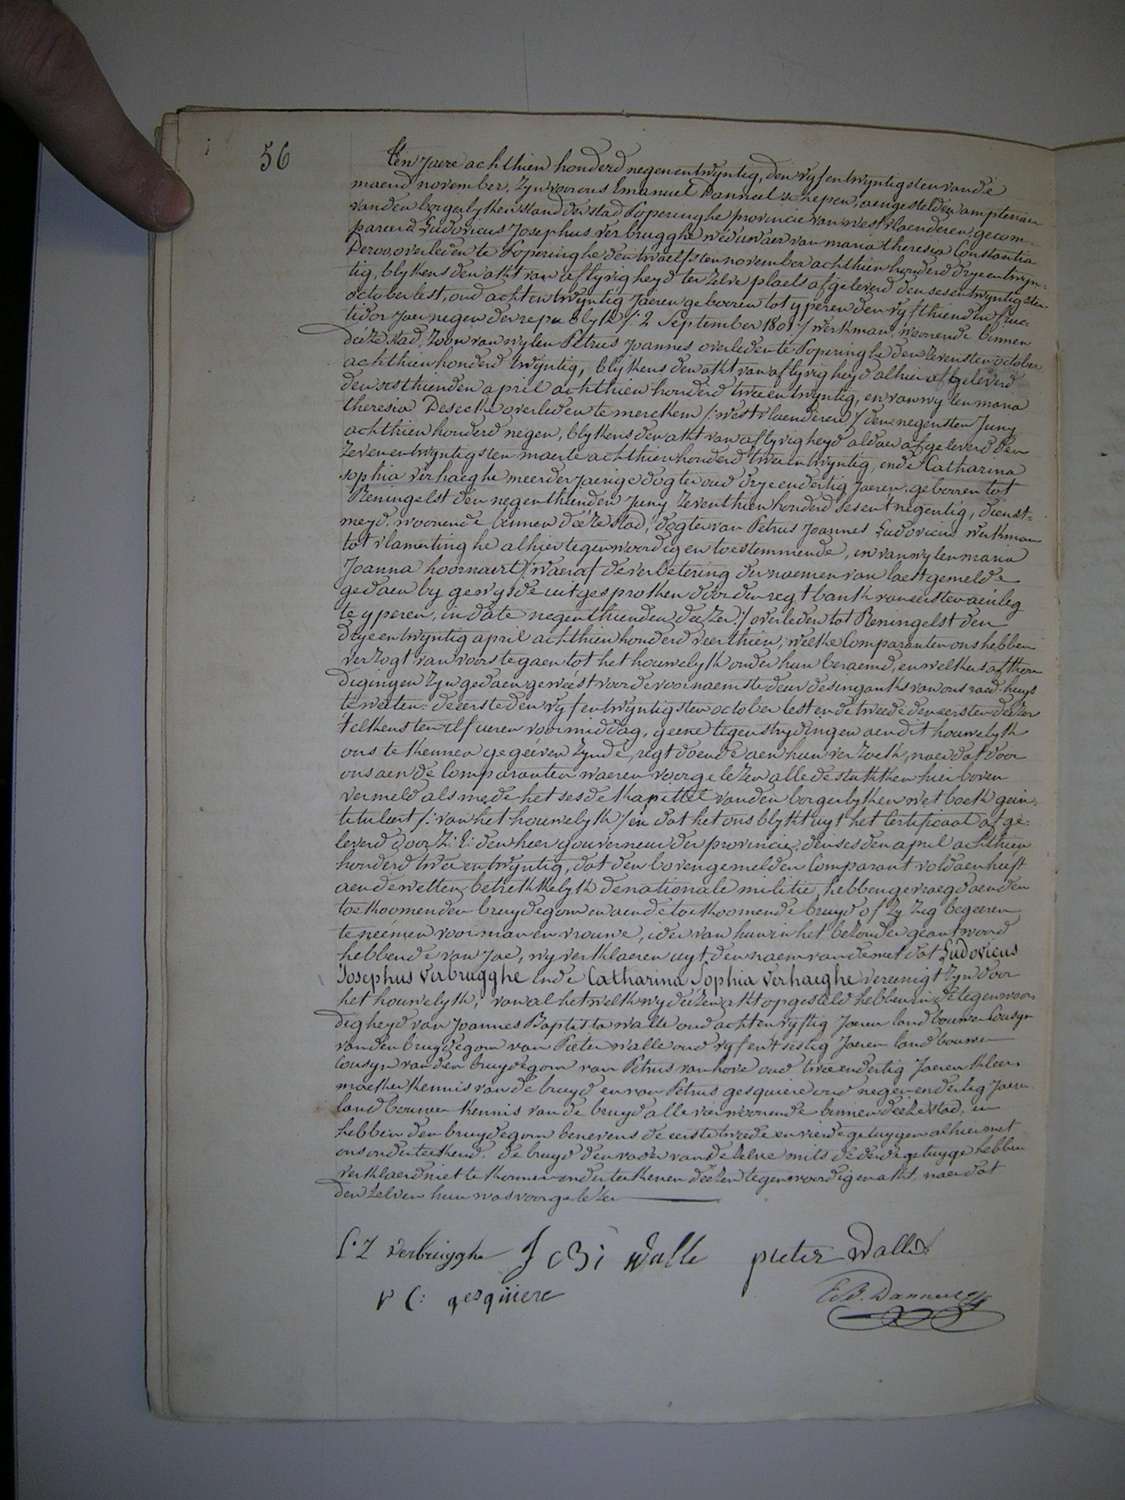 56
Ten Jaere achthien honderd negenentwyntig, den vyfentwyntigsten van de
maend november, zyn voor ons Emanuel Danneel schepen, aengestelden amptenaer
van den borgerlyken stand der stad Poperinghe provincie van westvlaenderen, gecom-
pareerd Ludovicus Josephus verbrugghe weduwaer van maria theresia Constantia
Deroo, overleden te Poperinghe den twaelfsten november achthien honderd dryentwyn-
tig, blykens den akt van aflyvigheyd te zelve plaets afgeleverd den sesentwyntigsten
october lest, oud achtentwyntig Jaeren geboren tot yperen den vyfthienden fruc-
tidor Jaer negen der republyke /: 2 September 1801 :/ werkman, woonende binnen
deéze stad, zoon van wylen Petrus Joannes overleden te Poperinghe den zevensten october
achthien honderd twyntig, blykens den akt van aflyvigheyd alhier afgeleverd
den sesthienden april achthien honderd tweentwyntig, en van wylen maria
theresia Deseck overleden te merckem /: westvlaenderen :/ den negensten Juny
achthien honderd negen, blykens den akt van aflyvigheyd aldaer afgeleverd den
zevenentwyntigsten maerte achthien honderd tweentwyntig, ende Catharina
sophia verhaeghe meerderjaerige dogter oud dryendertig Jaeren, geboren tot
Reningelst den negenthienden Juny zeventhien honderd sesentnegentig, dienst-
meyd, woonende binnen deéze stad, dogter van Petrus Joannes Ludovicus werkman
tot vlamertinghe alhier tegenwoordig en toestemmende, en van wylen maria
Joanna hoornaert /: waeraf de verbetering der naemen van laestgemelde
gedaen by gewysde uitgesproken door den regtbank van eersten aenleg
te yperen, in date negenthienden deézer :/ overleden tot Reningelst den
dryentwyntig april achthien honderd veerthien, welke Comparanten ons hebben
verzogt van voorstegaen tot het houwelyk onder hun beraemd, en welkers afkon-
digingen zyn gedaen geweést voor de voornaemste deur des ingankt van ons raedhuys
te weten: de eerste den vyfentwyntigsten october lest en de tweede den eersten deézer
telkens ten elf ueren voormiddag, geene tegenstrydingen aen dit houwelyk
ons te kennen gegeéven zynde, regt doende aen hun verzoek, naer dat door
ons aen de Comparanten waeren voorgelezen alle de stukken hier boven
vermeld als mede het sesde kapittel van den borgerlyken wetboek gein-
tituleert /: van het houwelyk :/ en dat het ons blykt uyt het Certificaat afge-
leverd door Z: E: den heer gouverneur der provincie, den sesden april achthien
honderd tweeentwyntig, dat den bovengemelden Comparant voldaen heeft
aen de wetten betrekkelyk de nationale militie, hebben gevraegd aen den
toekoomenden bruydegom en aen de toekoomende bruyd of zy zig begeeren
te neémen voor man en vrouwe, ider van hun in het bezonder geantwoord
hebbende van Jae, wy verklaeren uyt den naem van de wet dat Ludovicus
Josephus verbrugghe ende Catharina Sophia verhaeghe vereenigt zyn door
het houwelyk, van al het welk wy deézen akt opgesteld hebben in de tegenwoor-
digheyd van Joannes Baptista walle oud achtenvyftig Jaeren landbouwer Cousyn
van den bruydegom van Pieter walle oud vyfentsestig Jaeren landbouwer
Cousyn van den bruydegom van Petrus vanhove oud tweendertig Jaeren kleer-
maeker kennis van de bruyd en van Petrus gesquiere oud negenendertig Jaeren
landbouwer kennis van de bruyd alle vier woonende binnen deéze stad, en
hebben den bruydegom benevens de eerste tweede en vierde getuygen alhier met
ons onderteekend, de bruyd den vader van de zelve mits de derde getuyge hebben
verklaerd niet te konnen onderteekenen deézen tegenwoordigen akt, naer dat
den zelven hun was voorgelezen
L. Z verbrugghe J Bi walle pieter walle
P C: gesquiere E. B. Danneel